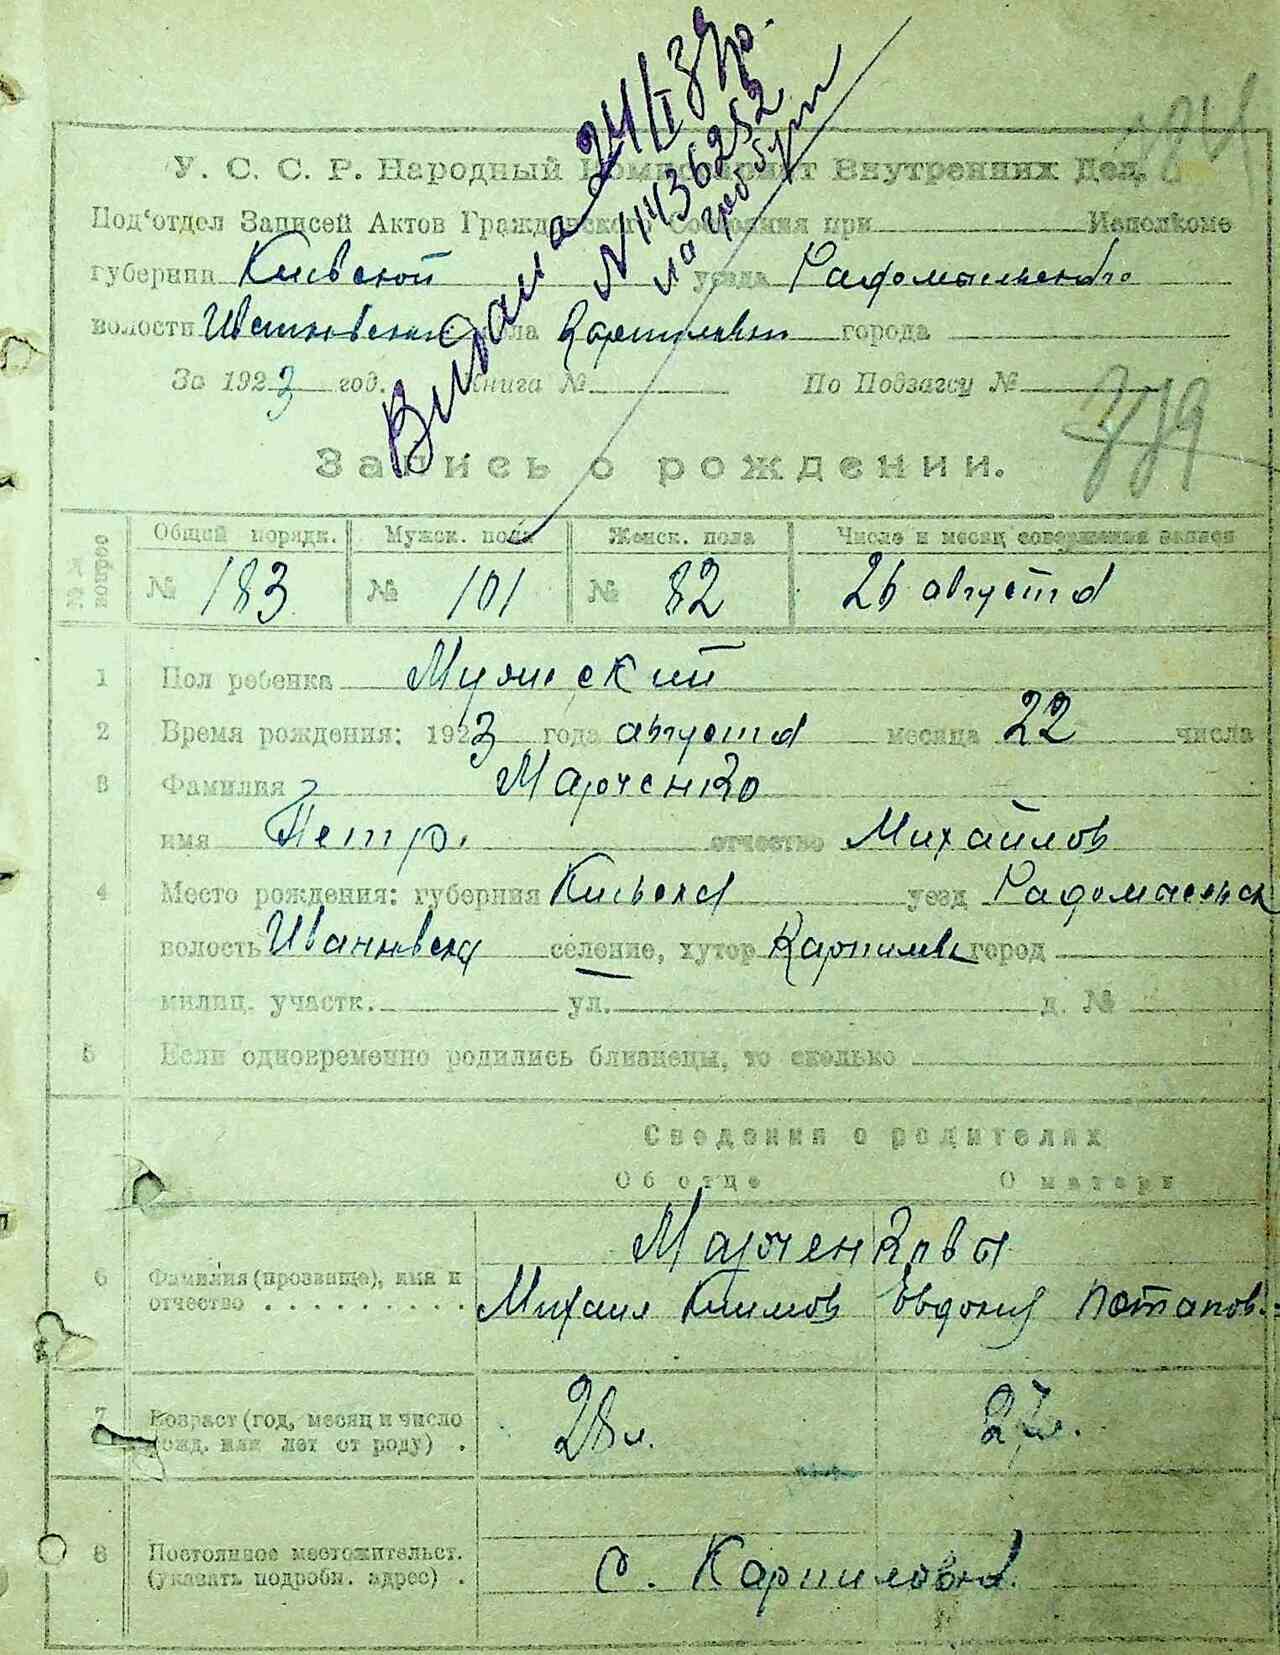 Видана 24/I 39р.
N 1436252
У. С. С. Р. Народный Комиссариат Внутренних Дел.
Под'отдел Записей Актов Гражданского Состояния при Исполкоме
губернии Киевской уезда Радомысльского
волости Ивановской села Карпиловки города
За 1923 год. Книга № По Подзагсу №
379
Запись о рождении.
Общий порядк. Мужск. пола Женск. пола Число и месяц совершения записи
№ 183 № 101 № 82 26 августа
1 Пол ребенка Мужеский
2 Время рождения: 1923 года августа месяца 22 числа
3 Фамилия Марченко
имя Петр. отчество Михайлов
4 Место рождения: губерния Киевска уезд Радомысльск
волость Ивановска селение, хутор Карпиловк город
милиц. участк. ул. д. №
5 Если одновременно родились близнецы, то сколько
Сведения о родителях
Об отце О матери
Марченковы
6 Фамилия (прозвище), имя и
отчество . . . . . . . . . Михаил Климов Евдокия Потапов.
7 Возраст (год, месяц и число
рожд. или лет от роду) . 28 л. 27 л.
8 Постоянное местожительст.
(указать подробн. адрес) . с. Карпиловка.